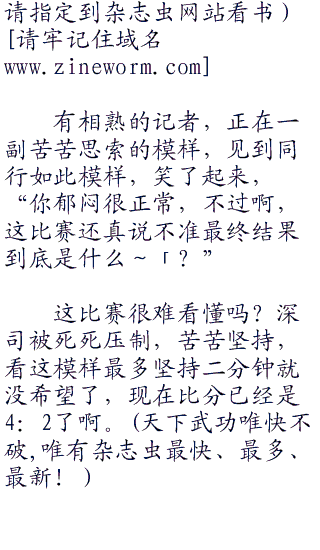 请指定到杂志虫网站看书）
[请牢记住域名
www.zineworm.com]
有相熟的记者，正在一
副苦苦思索的模样，见到同
行如此模样，笑了起来，
“你郁闷很正常，不过啊，
这比赛还真说不准最终结果
到底是什么～「？”
这比赛很难看懂吗？深
司被死死压制，苦苦坚持，
看这模样最多坚持二分钟就
没希望了，现在比分已经是
4：2了啊。(天下武功唯快不
破,唯有杂志虫最快、最多、
最新！)